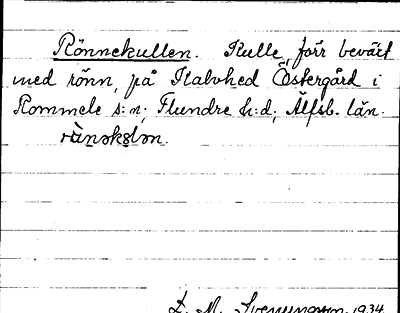 Rönnekullen. Kulle, förr bevärt
med rönn, på Stalvhed Östergård i
Rommele s:n; Flundre h:d; Älfsb. län.
L. M. Svenungsson 1934